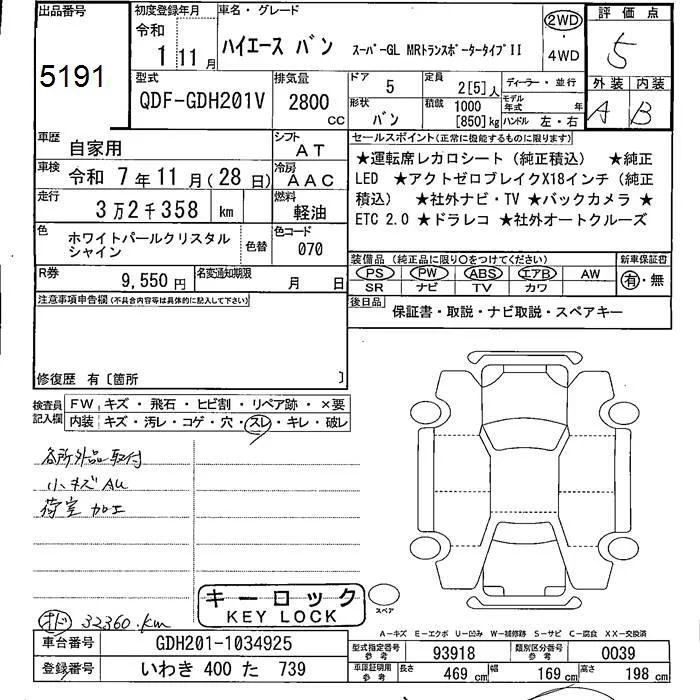 出品番号
5191
初度登録年月
令和
1 11月
車名・グレード
ハイエース バン スーパーGL MRトランスポータータイプⅡ
2WD
・
4WD
評価点
5
外装 内装
A B
型式
QDF-GDH201V
排気量
2800
cc
ドア
5
定員
2[5]人
ディーラー・並行
形状
バン
積載
1000
[850]kg
モデル年式 年
ハンドル 左・右
車歴
自家用
シフト
AT
車検
令和 7年11月(28日)
冷房
AAC
走行
3万2千358 km
燃料
軽油
色
ホワイトパールクリスタル
シャイン
色替
色コード
070
R券
9,550円
名変通知期限
月 日
セールスポイント(正常に機能するものに限ります)
★運転席レカロシート(純正積込) ★純正
LED ★アクトゼロブレイクX18インチ(純正
積込) ★社外ナビ・TV ★バックカメラ ★
ETC 2.0 ★ドラレコ ★社外オートクルーズ
装備品(純正品に限り○をつけてください)
PS PW ABS エアB AW
SR ナビ TV カワ
新車保証書
有・無
後日品
保証書・取説・ナビ取説・スペアキー
注意事項申告欄(不具合内容等は具体的に記入して下さい)
修復歴 有〔箇所 〕
検査員
記入欄
FW キズ・飛石・ヒビ割・リペア跡・×要
内装 キズ・汚レ・コゲ・穴・スレ・キレ・破レ
各所外品取付
小キズAU
荷室加工
キーロック
KEY LOCK
スペア
オド 32360.km
A-キズ E-エクボ U-凹み W-補修跡 S-サビ C-腐食 XX-交換済
車台番号
GDH201-1034925
登録番号
いわき 400 た 739
型式指定番号
参考
93918
類別区分番号
参考
0039
車庫証明用
参考
長さ
469 cm
幅
169 cm
高さ
198 cm